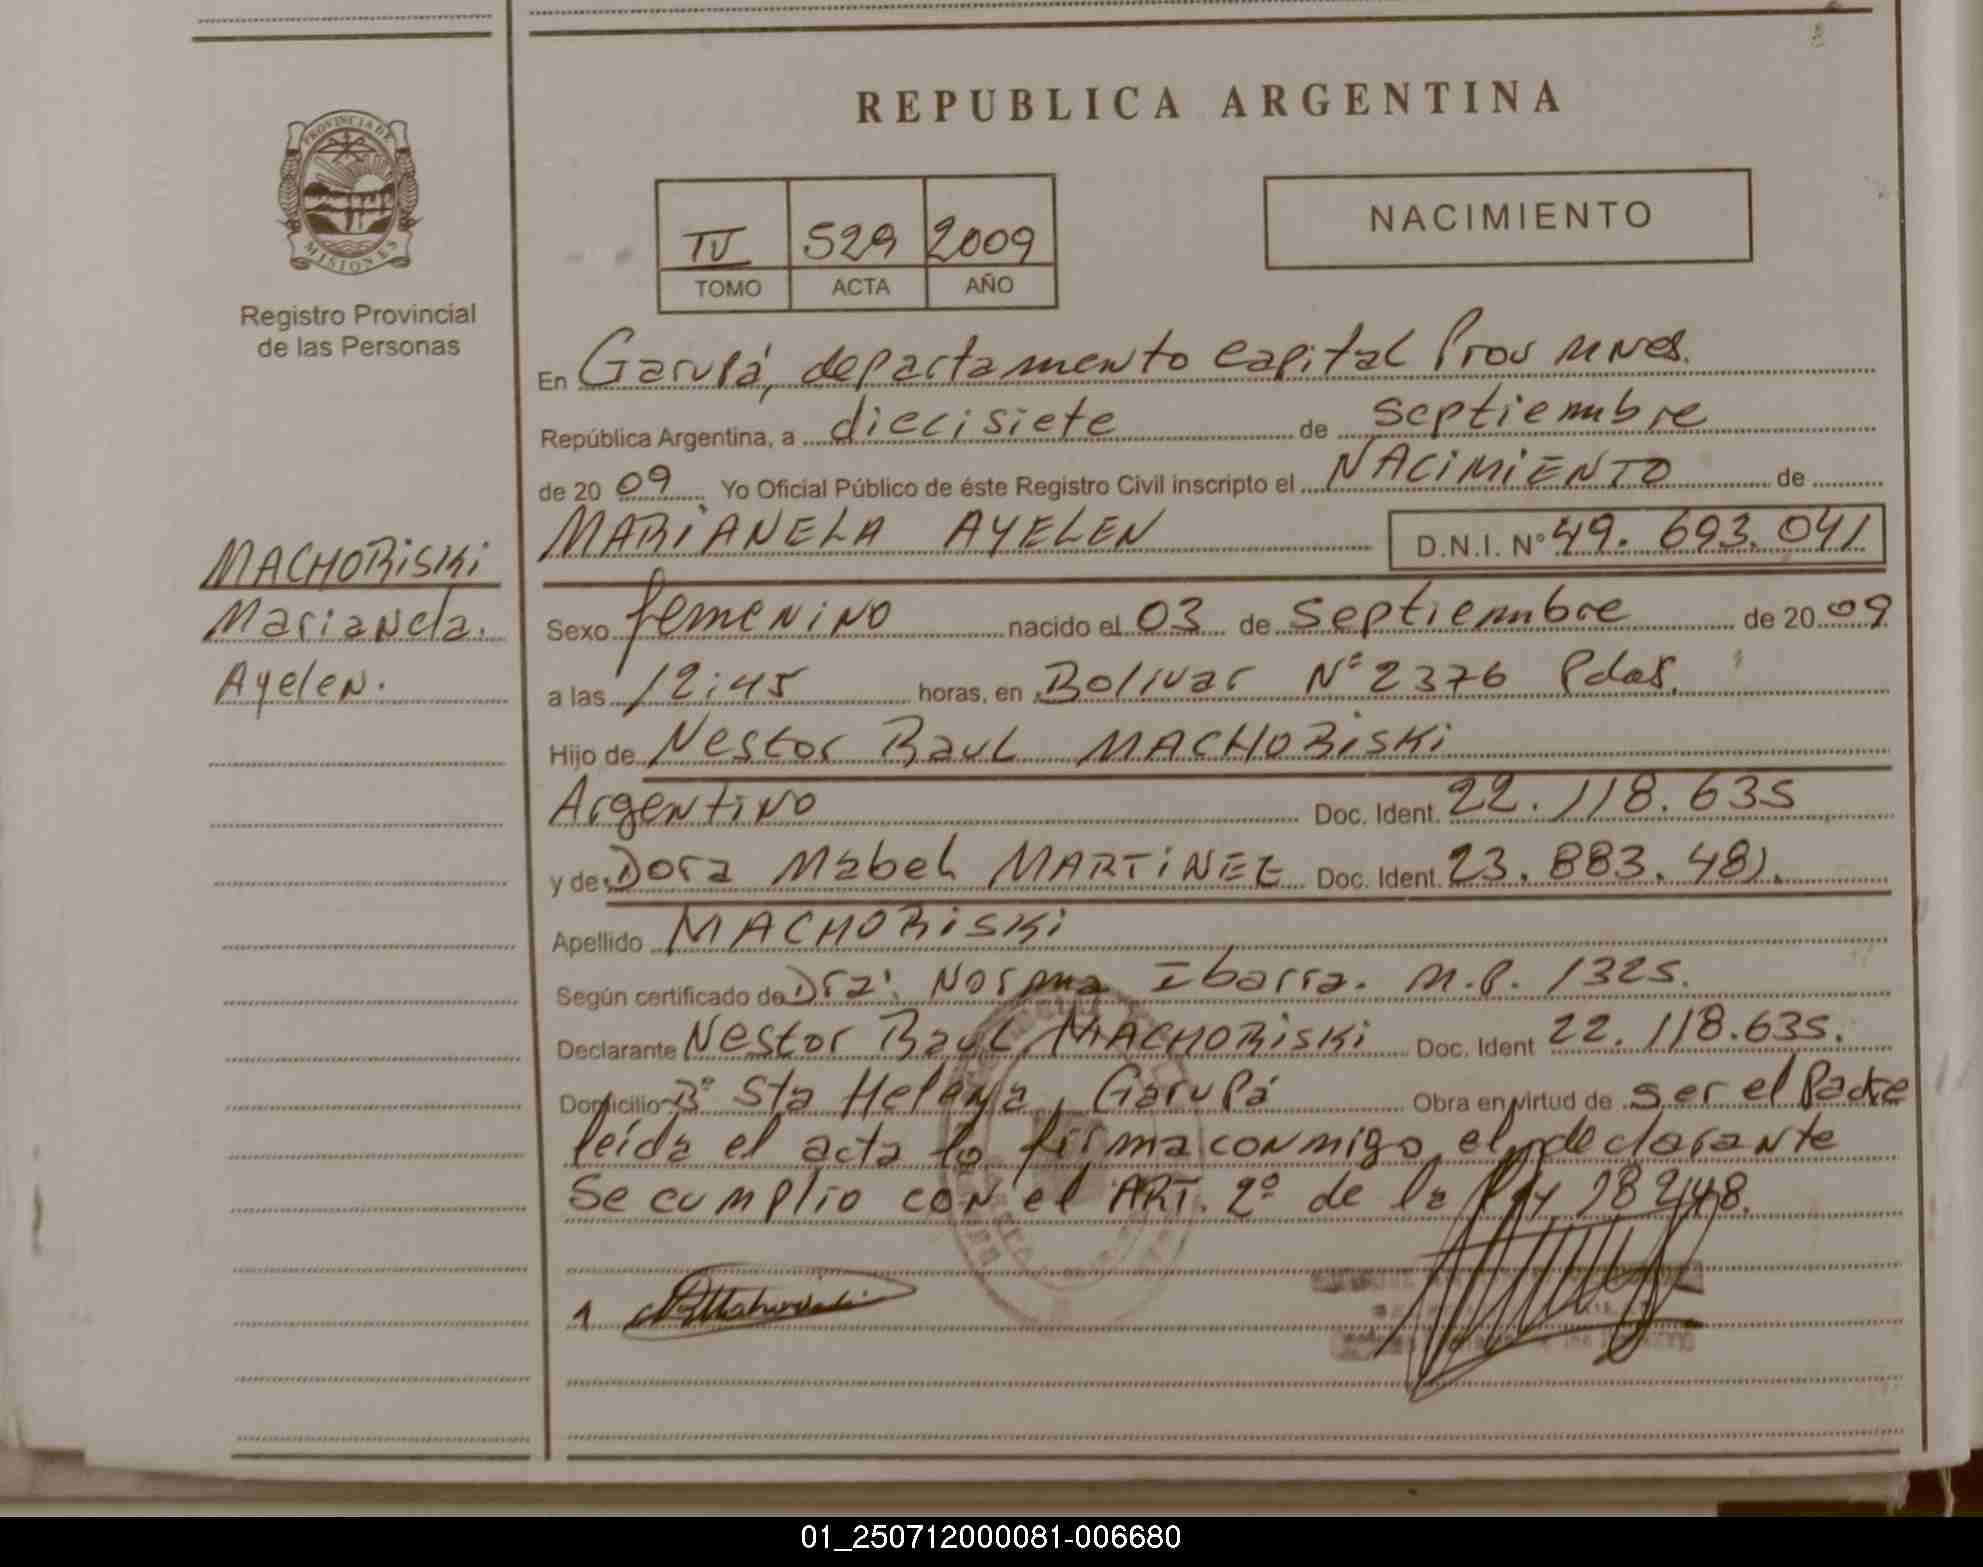 REPUBLICA ARGENTINA
PROVINCIA DE
MISIONES
Registro Provincial
de las Personas
IV 529 2009
TOMO ACTA AÑO
NACIMIENTO
En Garupá, departamento Capital Prov Mnes.
República Argentina, a diecisiete de septiembre
de 20 09 Yo Oficial Público de éste Registro Civil inscripto el NACIMIENTO de
MARIANELA AYELEN D.N.I. N° 49.693.041
MACHORISKI
Marianela.
Ayelen.
Sexo femenino nacido el 03 de Septiembre de 20 09
a las 12:45 horas, en Bolivar N° 2376 Pdas.
Hijo de Nestor Raul MACHORISKI
Argentino Doc. Ident. 22.118.635
y de Dora Mabel MARTINEZ Doc. Ident. 23.883.481.
Apellido MACHORISKI
Según certificado de Dra: Norma Ibarra. M.P. 1325.
Declarante Nestor Raul MACHORISKI Doc. Ident 22.118.635.
Domicilio B° Sta Helena, Garupá Obra en virtud de ser el Padre
leída el acta la firma conmigo el declarante
Se cumplio con el ART. 2° de la Ley 18248.
01_250712000081-006680